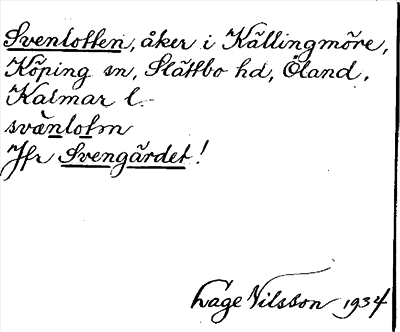 Svenlotten, åker i Källingmöre,
Köping sn, Slättbo hd, Öland,
Kalmar l.
svänlotn
Jfr Svengärdet!
Lage Nilsson 1934